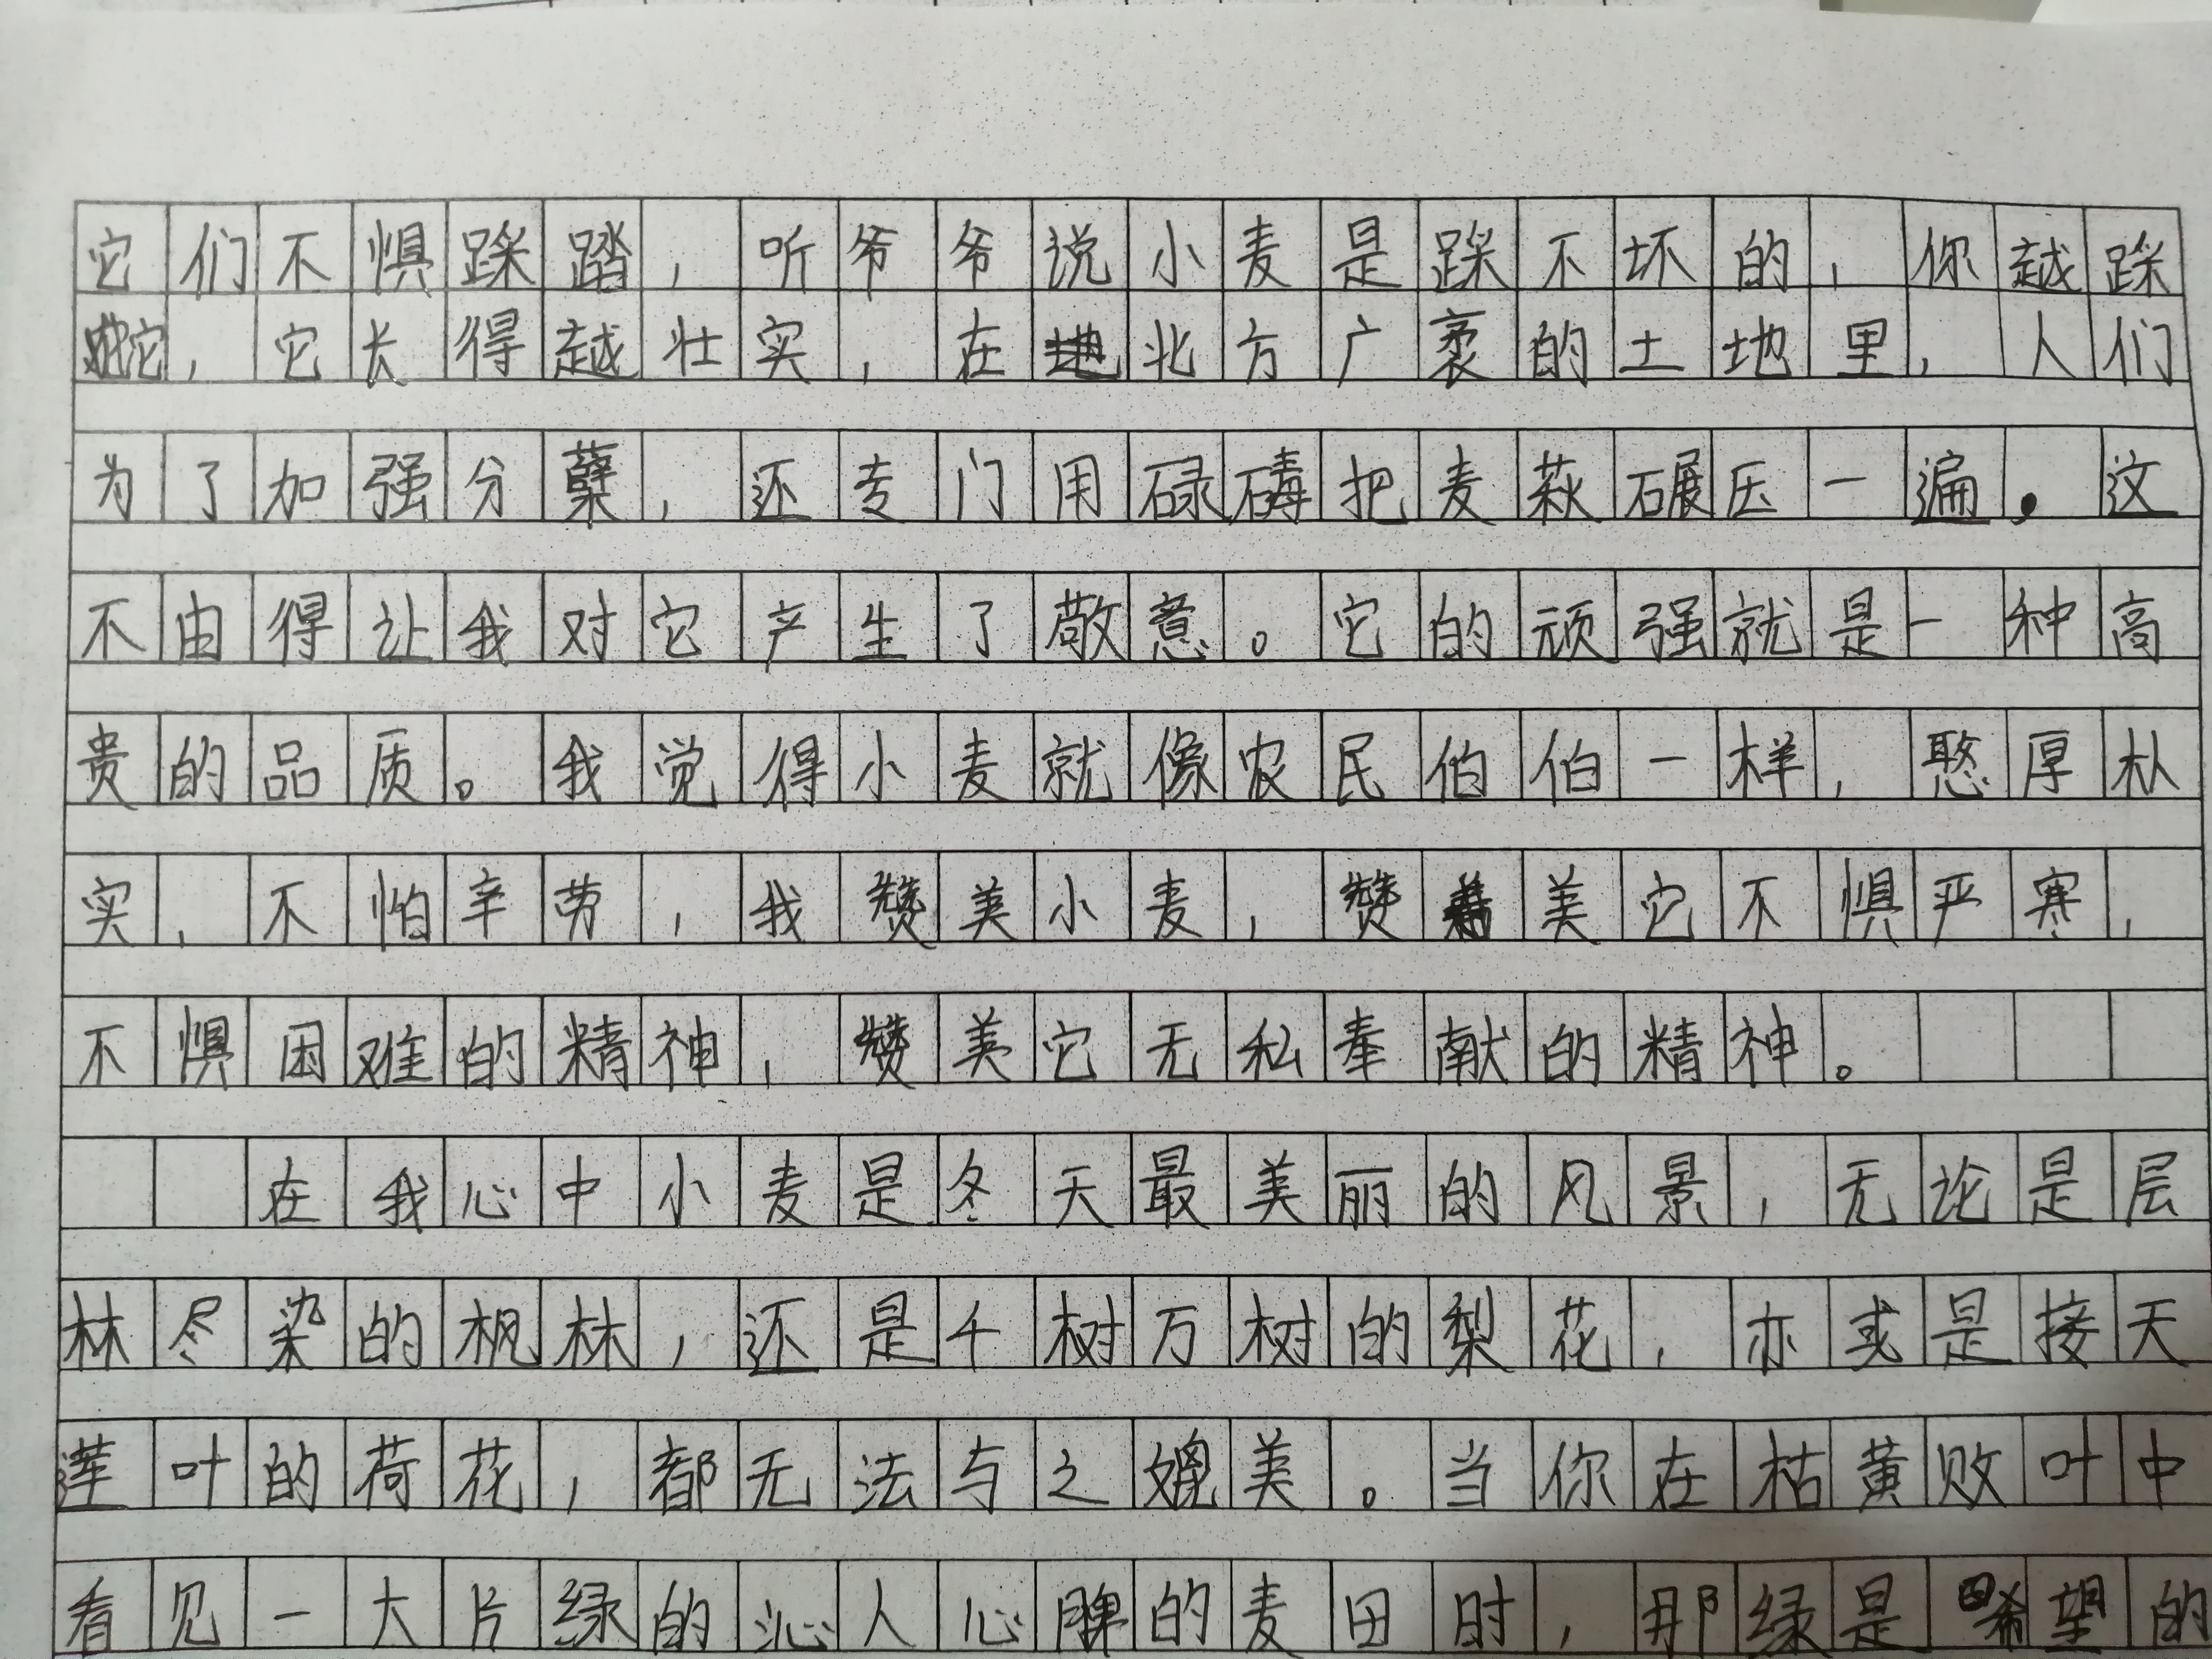 它们不惧踩踏，听爷爷说小麦是踩不坏的，你越踩
它，它长得越壮实，在北方广袤的土地里，人们
为了加强分蘖，还专门用碌碡把麦萩碾压一遍。这
不由得让我对它产生了敬意。它的顽强就是一种高
贵的品质。我觉得小麦就像农民伯伯一样，憨厚朴
实，不怕辛劳，我赞美小麦，赞美它不惧严寒，
不惧困难的精神，赞美它无私奉献的精神。
在我心中小麦是冬天最美丽的风景，无论是层
林尽染的枫林，还是千树万树的梨花，亦或是接天
莲叶的荷花，都无法与之媲美。当你在枯黄败叶中
看见一大片绿的沁人心脾的麦田时，那绿是希望的